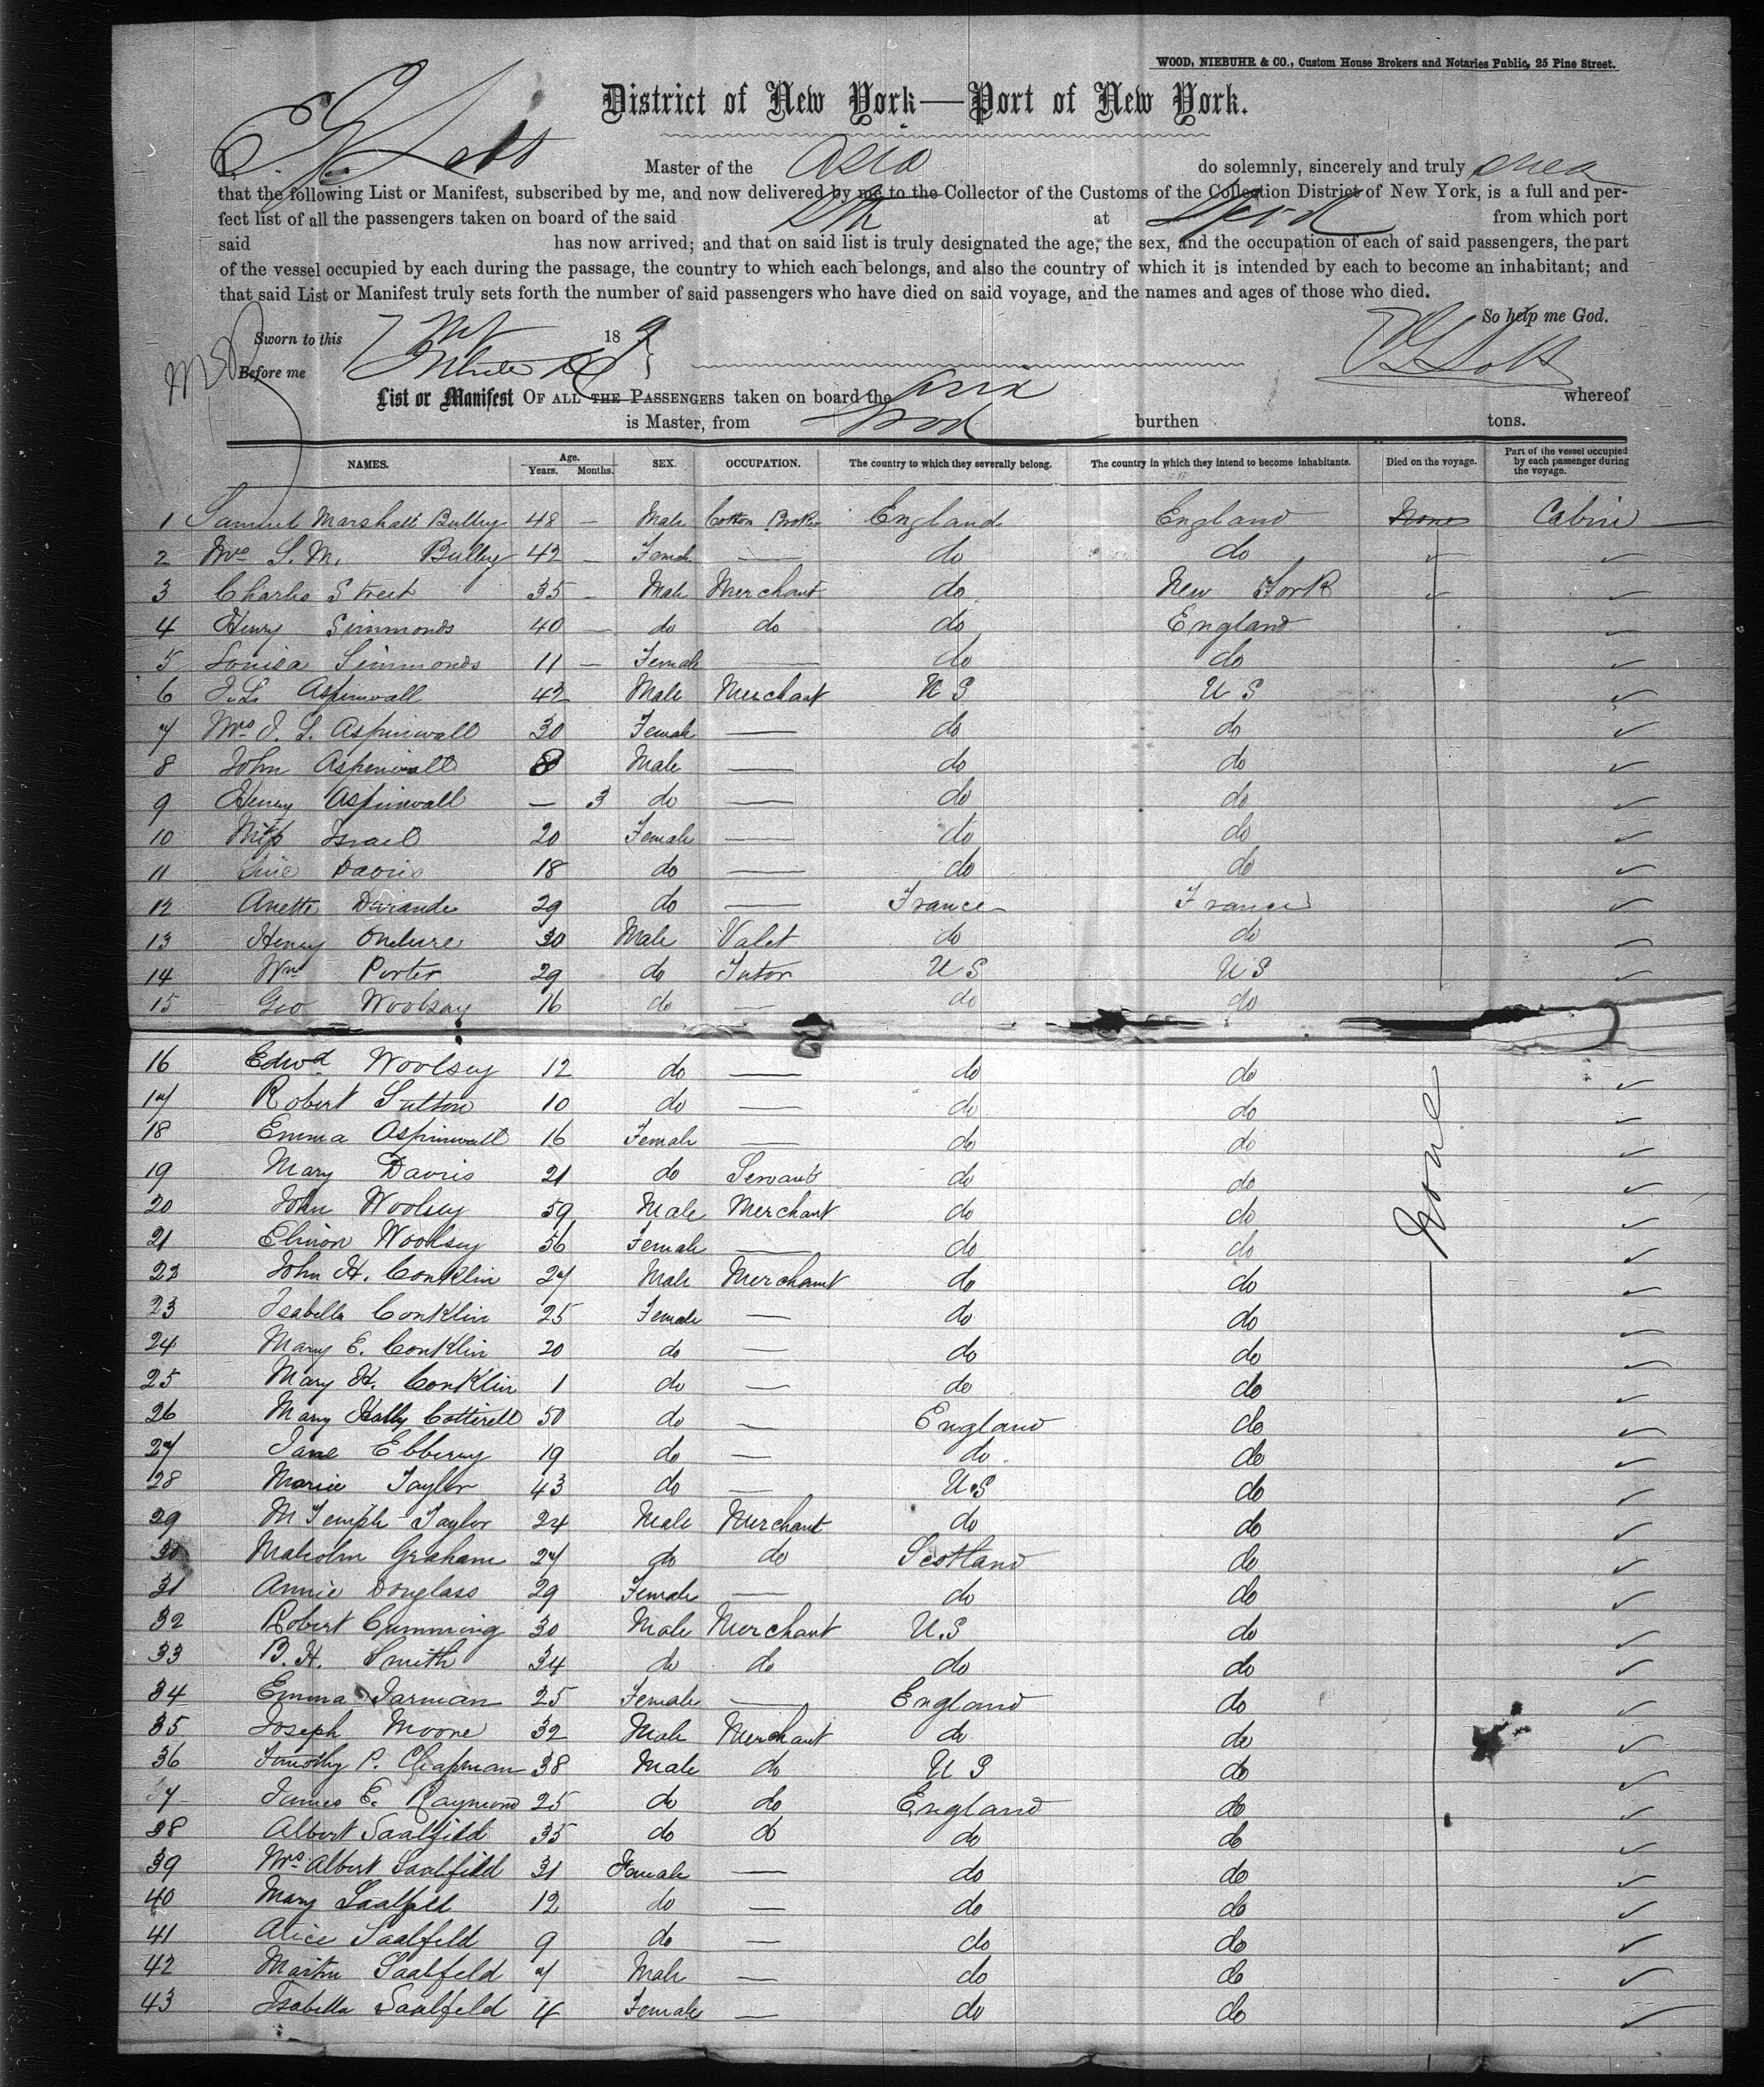 WOOD, NIEBUHR & CO., Custom House Brokers and Notaries Public, 25 Pine Street.
District of New York—Port of New York.
I, E G Lott Master of the Asia do solemnly, sincerely and truly swear
that the following List or Manifest, subscribed by me, and now delivered by me to the Collector of the Customs of the Collection District of New York, is a full and per-
fect list of all the passengers taken on board of the said at from which port
said has now arrived; and that on said list is truly designated the age, the sex, and the occupation of each of said passengers, the part
of the vessel occupied by each during the passage, the country to which each belongs, and also the country of which it is intended by each to become an inhabitant; and
that said List or Manifest truly sets forth the number of said passengers who have died on said voyage, and the names and ages of those who died.
So help me God.
Sworn to this 18
Before me
E G Lott
List or Manifest OF ALL THE PASSENGERS taken on board the Asia whereof
is Master, from burthen tons.
NAMES. Age. Years. Months. SEX. OCCUPATION. The country to which they severally belong. The country in which they intend to become inhabitants. Died on the voyage. Part of the vessel occupied by each passenger during the voyage.
1 Samuel Marshall Bulley 48 — Male Cotton Broker England England None Cabin —
2 Mrs S. M. Bulley 42 — Female — do do ✓ ✓
3 Charles Street 35 — Male Merchant do New York ✓ ✓
4 Henry Simmonds 40 — do do do England ✓
5 Louisa Simmonds 11 — Female — do do ✓
6 J. L. Aspinwall 42 Male Merchant U S U S ✓
7 Mrs J. L. Aspinwall 30 Female — do do ✓
8 John Aspinwall 8 Male — do do ✓
9 Henry Aspinwall — 3 do — do do ✓
10 Miss Israel 20 Female — do do ✓
11 Davis 18 do — do do ✓
12 Anette Durande 29 do — France France ✓
13 Henry 30 Male Valet do do ✓
14 Wm Porter 29 do Tutor U S U S ✓
15 Geo Woolsey 16 do — do do
16 Edwd Woolsey 12 do — do do ✓
17 Robert Sutton 10 do — do do ✓
18 Emma Aspinwall 16 Female — do do ✓
19 Mary Davis 21 do Servant do do ✓
20 John Woolsey 59 Male Merchant do do ✓
21 Elinor Woolsey 56 Female — do do ✓
22 John H. Conklin 27 Male Merchant do do ✓
23 Isabella Conklin 25 Female — do do ✓
24 Mary E. Conklin 20 do — do do ✓
25 Mary H. Conklin 1 do — do do ✓
26 Mary Cotterell 50 do — England do ✓
27 Jane Ebberey 19 do — do do ✓
28 Marie Taylor 43 do — U.S do ✓
29 M Temple Taylor 24 Male Merchant do do ✓
30 Malcolm Graham 27 do do Scotland do ✓
31 Annie Douglass 29 Female — do do ✓
32 Robert Cumming 30 Male Merchant U.S do ✓
33 B. H. Smith 34 do do do do ✓
34 Emma Jarman 25 Female — England do ✓
35 Joseph Moore 32 Male Merchant do do ✓
36 Timothy P. Chapman 38 Male do U S do ✓
37 James E. Raymond 25 do do England do ✓
38 Albert Saalfield 35 do do do do ✓
39 Mrs Albert Saalfield 31 Female — do do ✓
40 Mary Saalfeld 12 do — do do ✓
41 Alice Saalfeld 9 do — do do ✓
42 Martin Saalfeld 7 Male — do do ✓
43 Isabella Saalfeld 4 Female — do do ✓
None